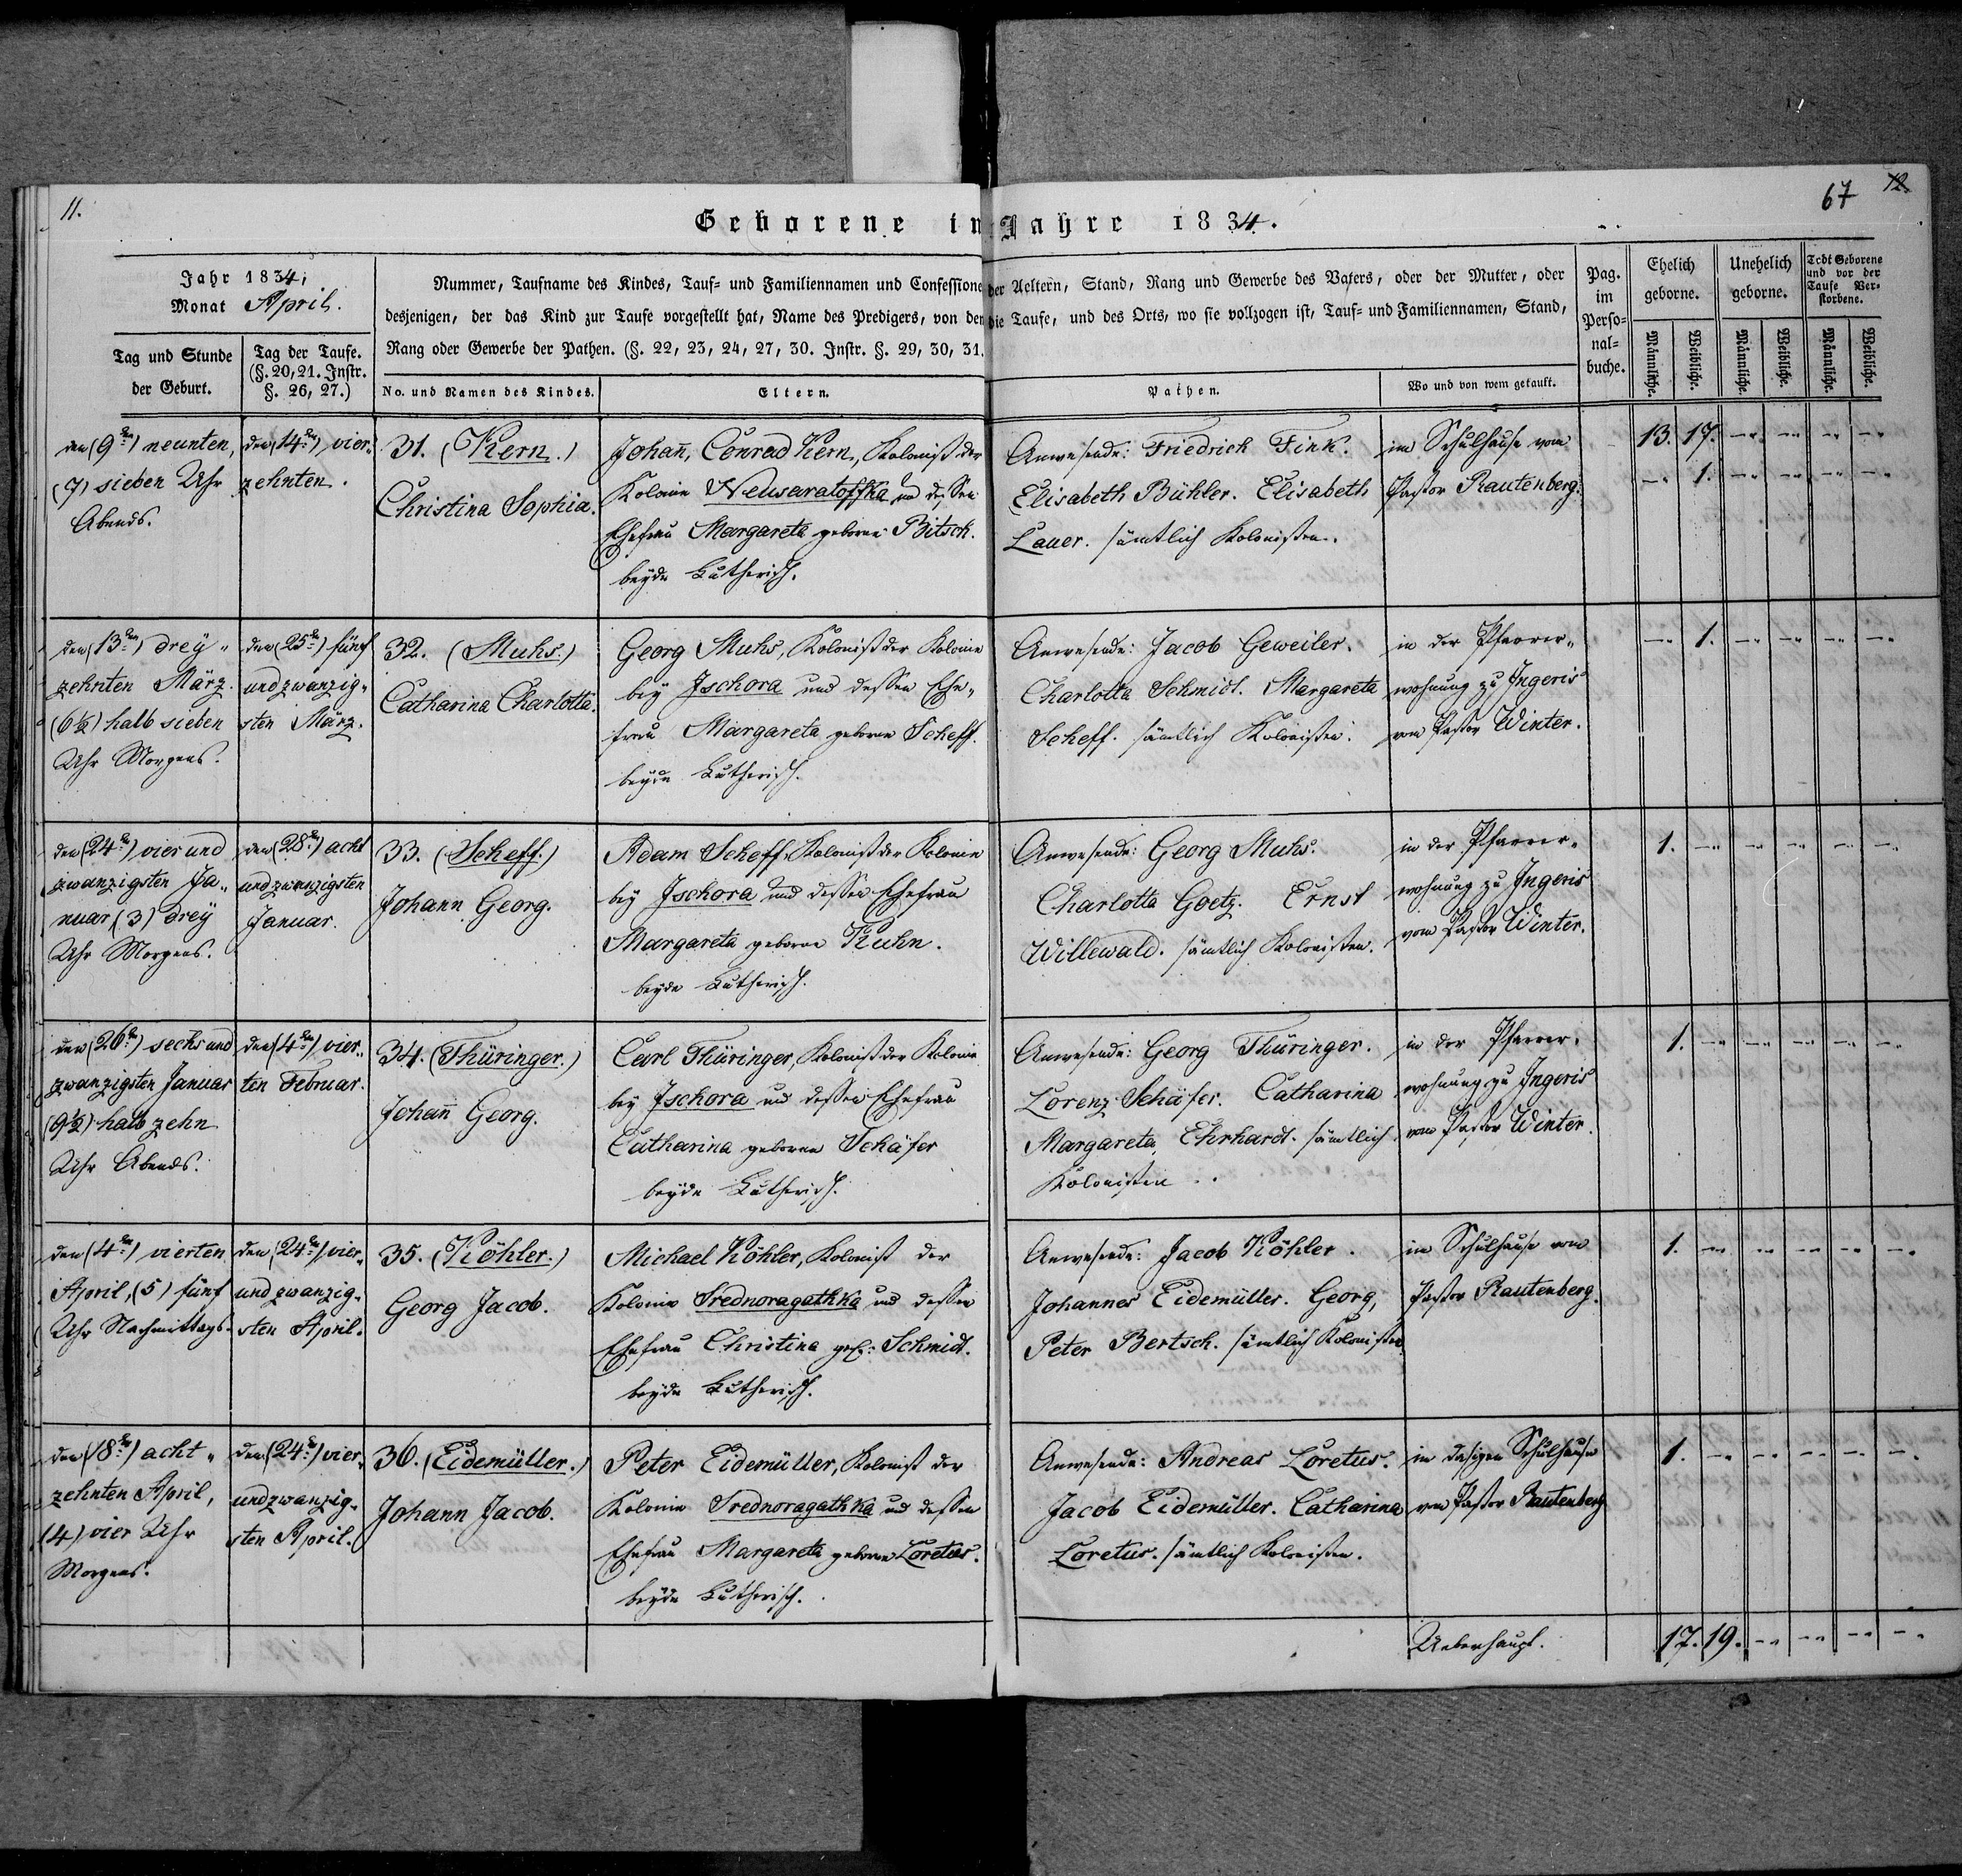 11.
67 12
Geborene im Jahre 1834.
Jahr 1834,
Monat April.
Tag und Stunde
der Geburt.
Tag der Taufe.
(§. 20, 21. Instr.
§. 26, 27.)
Nummer, Taufname des Kindes, Tauf- und Familiennamen und Confessionen der Aeltern, Stand, Rang und Gewerbe des Vaters, oder der Mutter, oder
desjenigen, der das Kind zur Taufe vorgestellt hat, Name des Predigers, von dem die Taufe, und des Orts, wo sie vollzogen ist, Tauf- und Familiennamen, Stand,
Rang oder Gewerbe der Pathen. (§. 22, 23, 24, 27, 30. Instr. §. 29, 30, 31.
No. und Namen des Kindes.
Eltern.
Pathen.
Wo und von wem getauft.
Pag.
im
Perso-
nal-
buche.
Ehelich
geborne.
Unehelich
geborne.
Todt Geborene
und vor der
Taufe Ver-
storbene.
Männliche.
Weibliche.
Männliche.
Weibliche.
Männliche.
Weibliche.
den (9ten) neunten,
(7) sieben Uhr
Abends.
den (14ten) vier-
zehnten.
31. (Kern.)
Christina Sophia.
Johann, Conrad Kern, Kolonist der
Kolonie Neusaratoffka und dessen
Ehefrau Margareta geborne Bitsch.
beyde Lutherisch.
Anwesende: Friedrich Fink.
Elisabeth Bühler. Elisabeth
Lauer. sämtlich Kolonisten.
im Schulhause vom
Pastor Rautenberg.
13. 17. -- -- -- --
-- 1. -- -- -- --
den (13ten) drey-
zehnten März.
(6½) halb sieben
Uhr Morgens.
den (25ten) fünf
und zwanzig-
sten März.
32. (Muhs.)
Catharina Charlotta.
Georg Muhs, Kolonist der Kolonie
bey Ischora und dessen Ehe-
frau Margareta geborne Scheff.
beyde Lutherisch.
Anwesende: Jacob Geweiler.
Charlotta Schmidt. Margareta
Scheff. sämtlich Kolonisten.
in der Pfarrer-
wohnung zu Ingeris
vom Pastor Winter.
-- 1. -- -- -- --
den (24ten) vier und
zwanzigsten Ja-
nuar, (3) drey
Uhr Morgens.
den (28ten) acht
und zwanzigsten
Januar.
33. (Scheff.)
Johann Georg.
Adam Scheff, Kolonist der Kolonie
bey Ischora und dessen Ehefrau
Margareta geborne Kuhn.
beyde Lutherisch.
Anwesende: Georg Muhs.
Charlotta Goetz. Ernst
Willewald. sämtlich Kolonisten.
in der Pfarrer-
wohnung zu Ingeris
vom Pastor Winter.
1. -- -- -- -- --
den (26ten) sechs und
zwanzigsten Januar
(9½) halb zehn
Uhr Abends.
den (4ten) vier-
ten Februar.
34. (Thüringer.)
Johann Georg.
Carl Thüringer, Kolonist der Kolonie
bey Ischora und dessen Ehefrau
Catharina geborne Schäfer
beyde Lutherisch.
Anwesende: Georg Thüringer.
Lorenz Schäfer. Catharina
Margareta, Ehrhardt. sämtlich
Kolonisten.
in der Pfarrer-
wohnung zu Ingeris
vom Pastor Winter.
1. -- -- -- -- --
den (4ten) vierten
April, (5) fünf
Uhr Nachmittags.
den (24ten) vier
und zwanzig-
sten April.
35. (Köhler.)
Georg Jacob.
Michael Köhler, Kolonist der
Kolonie Srednoragathka und dessen
Ehefrau Christina geb: Schmidt.
beyde Lutherisch.
Anwesende: Jacob Köhler.
Johannes Eidemüller. Georg,
Peter Bertsch. sämtlich Kolonisten
im Schulhause vom
Pastor Rautenberg.
1. -- -- -- -- --
den (18ten) acht-
zehnten April,
(4) vier Uhr
Morgens.
den (24ten) vier
und zwanzig-
sten April.
36. (Eidemüller.)
Johann Jacob.
Peter Eidemüller, Kolonist der
Kolonie Srednoragathka und dessen
Ehefrau Margareta geborne Loretus.
beyde Lutherisch.
Anwesende: Andreas Loretus.
Jacob Eidemüller. Catharina
Loretus. sämtlich Kolonisten.
im dasigen Schulhause
vom Pastor Rautenberg
1. -- -- -- -- --
Ueberhaupt.
17. 19. -- -- -- --